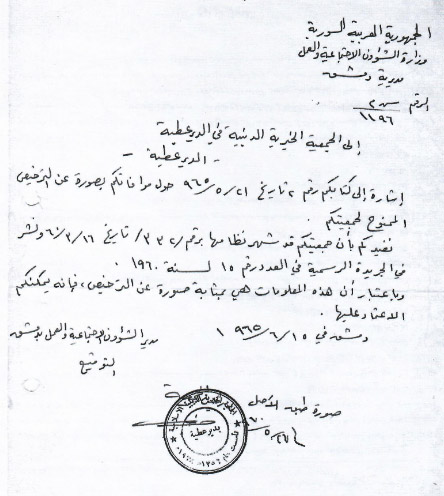 الجمهورية العربية السورية
وزارة الشؤون الاجتماعية والعمل
مديرية دمشق
الرقم س ٢
١١٩٦
إلى الجمعية الخيرية الدينية في الديرعطية
- الديرعطية -
إشارة إلى كتابكم رقم ٢ تاريخ ٩٦٥/٥/٢١ حول موافاتكم بصورة عن الترخيص
الممنوح لجمعيتكم .
نفيدكم بأن جمعيتكم قد شهر نظامها برقم /٣٣٢/ تاريخ ٦٠/٣/١٦ ونشر
في الجريدة الرسمية في العدد رقم ١٥ لسنة ١٩٦٠ .
وباعتبار أن هذه المعلومات هي بمثابة صورة عن الترخيص، فإنه يمكنكم
الاعتماد عليها .
دمشق في ١٩٦٥/٦/١٥
مدير الشؤون الاجتماعية والعمل بدمشق
التوقيع
صورة طبق الأصل
بديرعطية